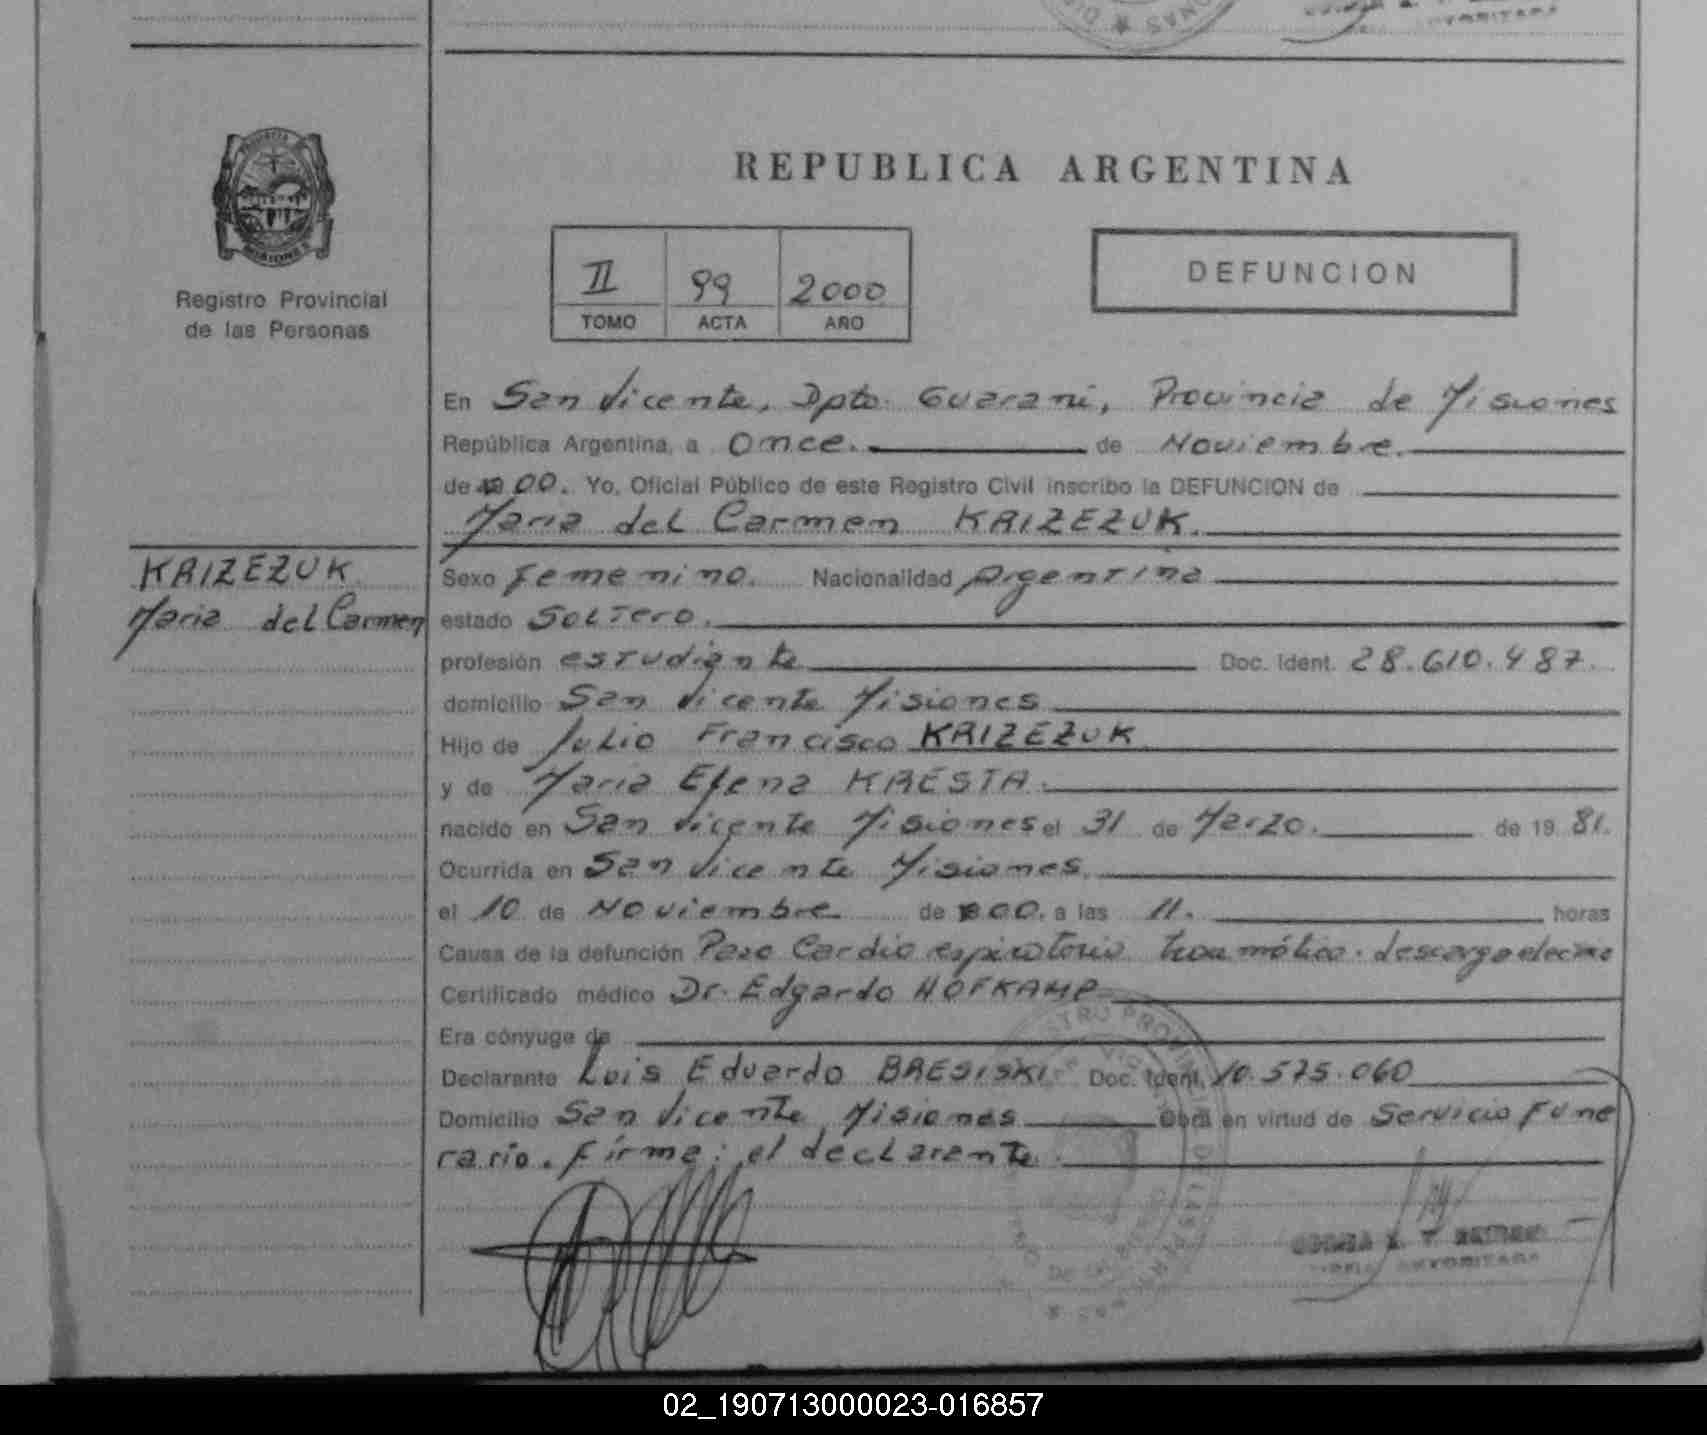 REPUBLICA ARGENTINA
Registro Provincial
de las Personas
II 99 2000
TOMO ACTA AÑO
DEFUNCION
En San Vicente, Dpto. Guarani, Provincia de Misiones
República Argentina, a once. de Noviembre.
de 00. Yo, Oficial Público de este Registro Civil inscribo la DEFUNCION de
Maria del Carmen KRIZEZUK.
KRIZEZUK
Maria del Carmen
Sexo femenino. Nacionalidad Argentina
estado Soltero.
profesión estudiante Doc. Ident. 28.610.487.
domicilio San Vicente Misiones
Hijo de Julio Francisco KRIZEZUK
y de Maria Elena KRESTA.
nacido en San Vicente Misiones el 31 de Marzo. de 19 81.
Ocurrida en San Vicente Misiones.
el 10 de Noviembre de 000. a las 11. horas
Causa de la defunción Paro Cardio respiratorio traumático. descarga
Certificado médico Dr. Edgardo HOFKAMP
Era cónyuge de
Declarante Luis Eduardo BRESISKI Doc. Ident. 10.575.060
Domicilio San Vicente Misiones Obra en virtud de Servicio Fune
rario. firma: el declarante.
02_190713000023-016857